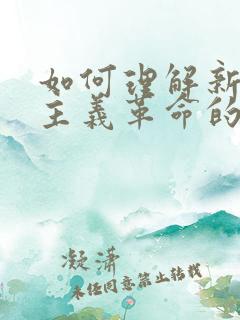 如何理解新
主义革命的
凝潇
未经同意禁止转载